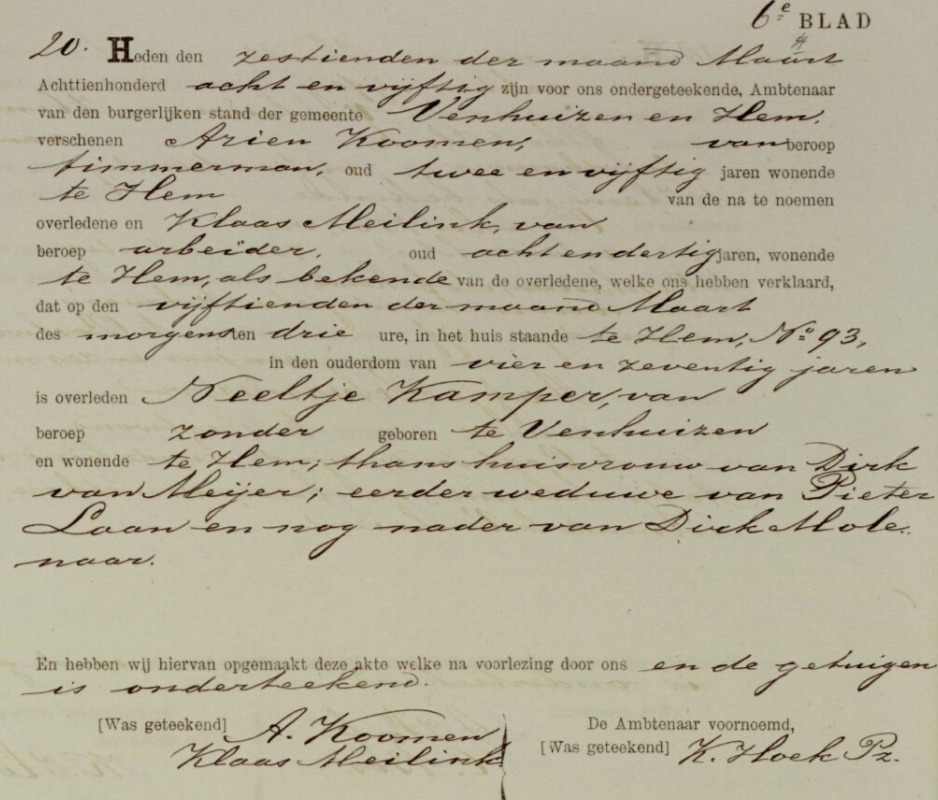 6e BLAD
20. Heden den zestienden der maand Maart
Achttienhonderd acht en vijftig zijn voor ons ondergeteekende, Ambtenaar
van den burgerlijken stand der gemeente Venhuizen en Hem,
verschenen Arien Koomen, van beroep
timmerman, oud twee en vijftig jaren wonende
te Hem van de na te noemen
overledene en Klaas Meilink, van
beroep arbeider, oud acht en dertig jaren, wonende
te Hem, als bekende van de overledene, welke ons hebben verklaard,
dat op den vijftienden der maand Maart
des morgens ten drie ure, in het huis staande te Hem, No 93,
in den ouderdom van vier en zeventig jaren
is overleden Neeltje Kamper, van
beroep zonder geboren te Venhuizen
en wonende te Hem; thans huisvrouw van Dirk
van Meijer; eerder weduwe van Pieter
Laan en nog nader van Dirk Mole-
naar.
En hebben wij hiervan opgemaakt deze akte welke na voorlezing door ons en de getuigen
is onderteekend.
[Was geteekend] A. Koomen De Ambtenaar voornoemd,
Klaas Meilink [Was geteekend] K. Hoek Pz.